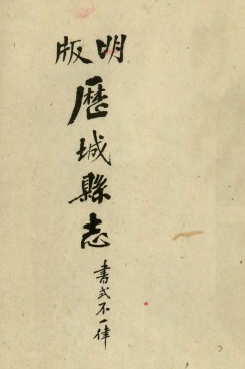 明版
歷城縣志
書式不一律